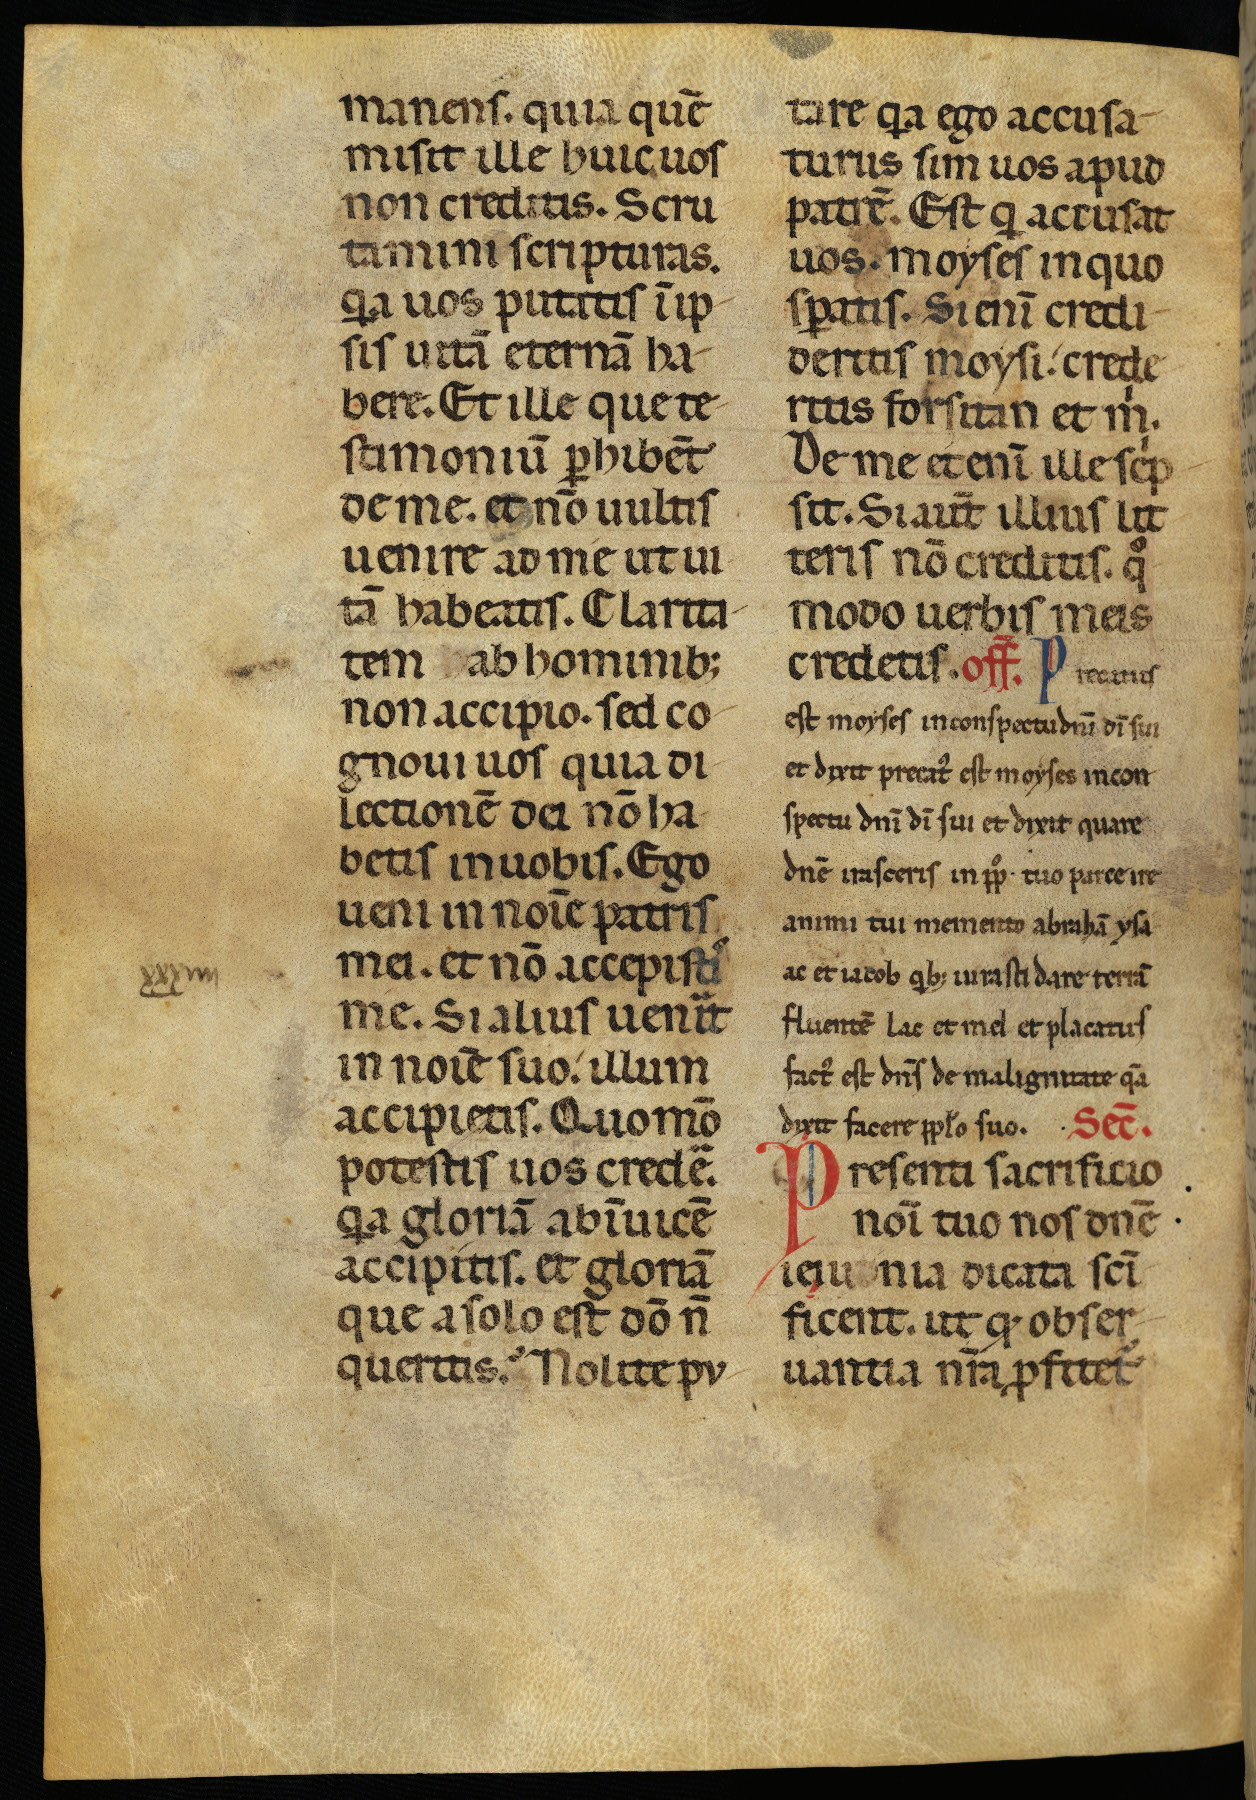 manens. quia quē
misit ille huic uos
non creditis. Scru
tamini scripturas.
qa uos putatis ī ip
sis uitā eternā ha
bere. Et ille que te
stimoniū phibēt
de me. et nō uultis
uenire ad me ut ui
tā habeatis. Clarita
tem ab hominib;
non accipio. sed co
gnoui uos quia di
lectionē dei nō ha
betis in uobis. Ego
ueni in noīe patris
mei. et nō accepisti
me. Si alius uenit
in noīe suo. illum
accipietis. Quomō
potestis uos credē.
qa gloriā ab īuicē
accipitis. et gloriā
que a solo est dō n̄
queritis. Nolite pu
tare qa ego accusa
turus sim uos apud
patrē. Est q accusat
uos. moyses in quo
spatis. Si enī credi
deritis moysi. crede
ritis forsitan et m.
De me et enī ille scp
sit. Si aūt illius lit
teris nō creditis. qo
modo uerbis meis
credetis. off. Precatus
est moyses in conspectu dnī dī sui
et dixit precat est moyses in con
spectu dnī dī sui et dixit quare
dnē irasceris in pp tuo parce ire
animi tui memento abrahā ysa
ac et iacob qb; iurasti dare terrā
fluentē lac et mel et placatus
fact est dns de malignitate qā
dixit facere pplo suo. Sec.
Presenti sacrificio
noī tuo nos dnē
ieiunia dicata scī
ficent. ut q obser
uantia nra pfitet